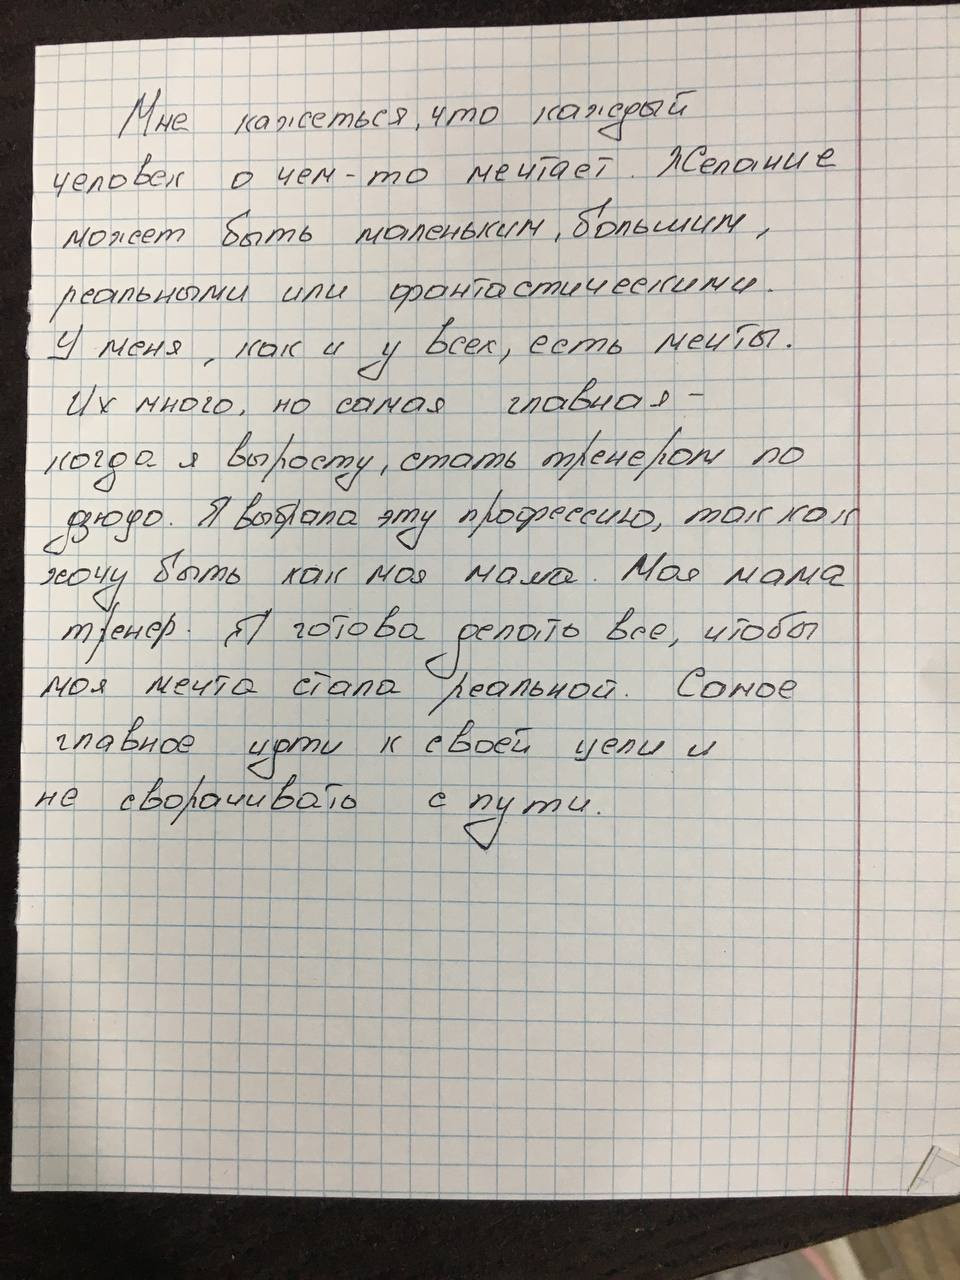 Мне кажеться, что каждый
человек о чем-то мечтает. Желание
может быть маленьким, большим,
реальными или фантастическими.
У меня, как и у всех, есть мечты.
Их много, но самая главная -
когда я выросту, стать тренером по
дзюдо. Я выбрала эту профессию, так как
хочу быть как моя мама. Моя мама
тренер. Я готова делать все, чтобы
моя мечта стала реальной. Самое
главное идти к своей цели и
не сворачивать с пути.